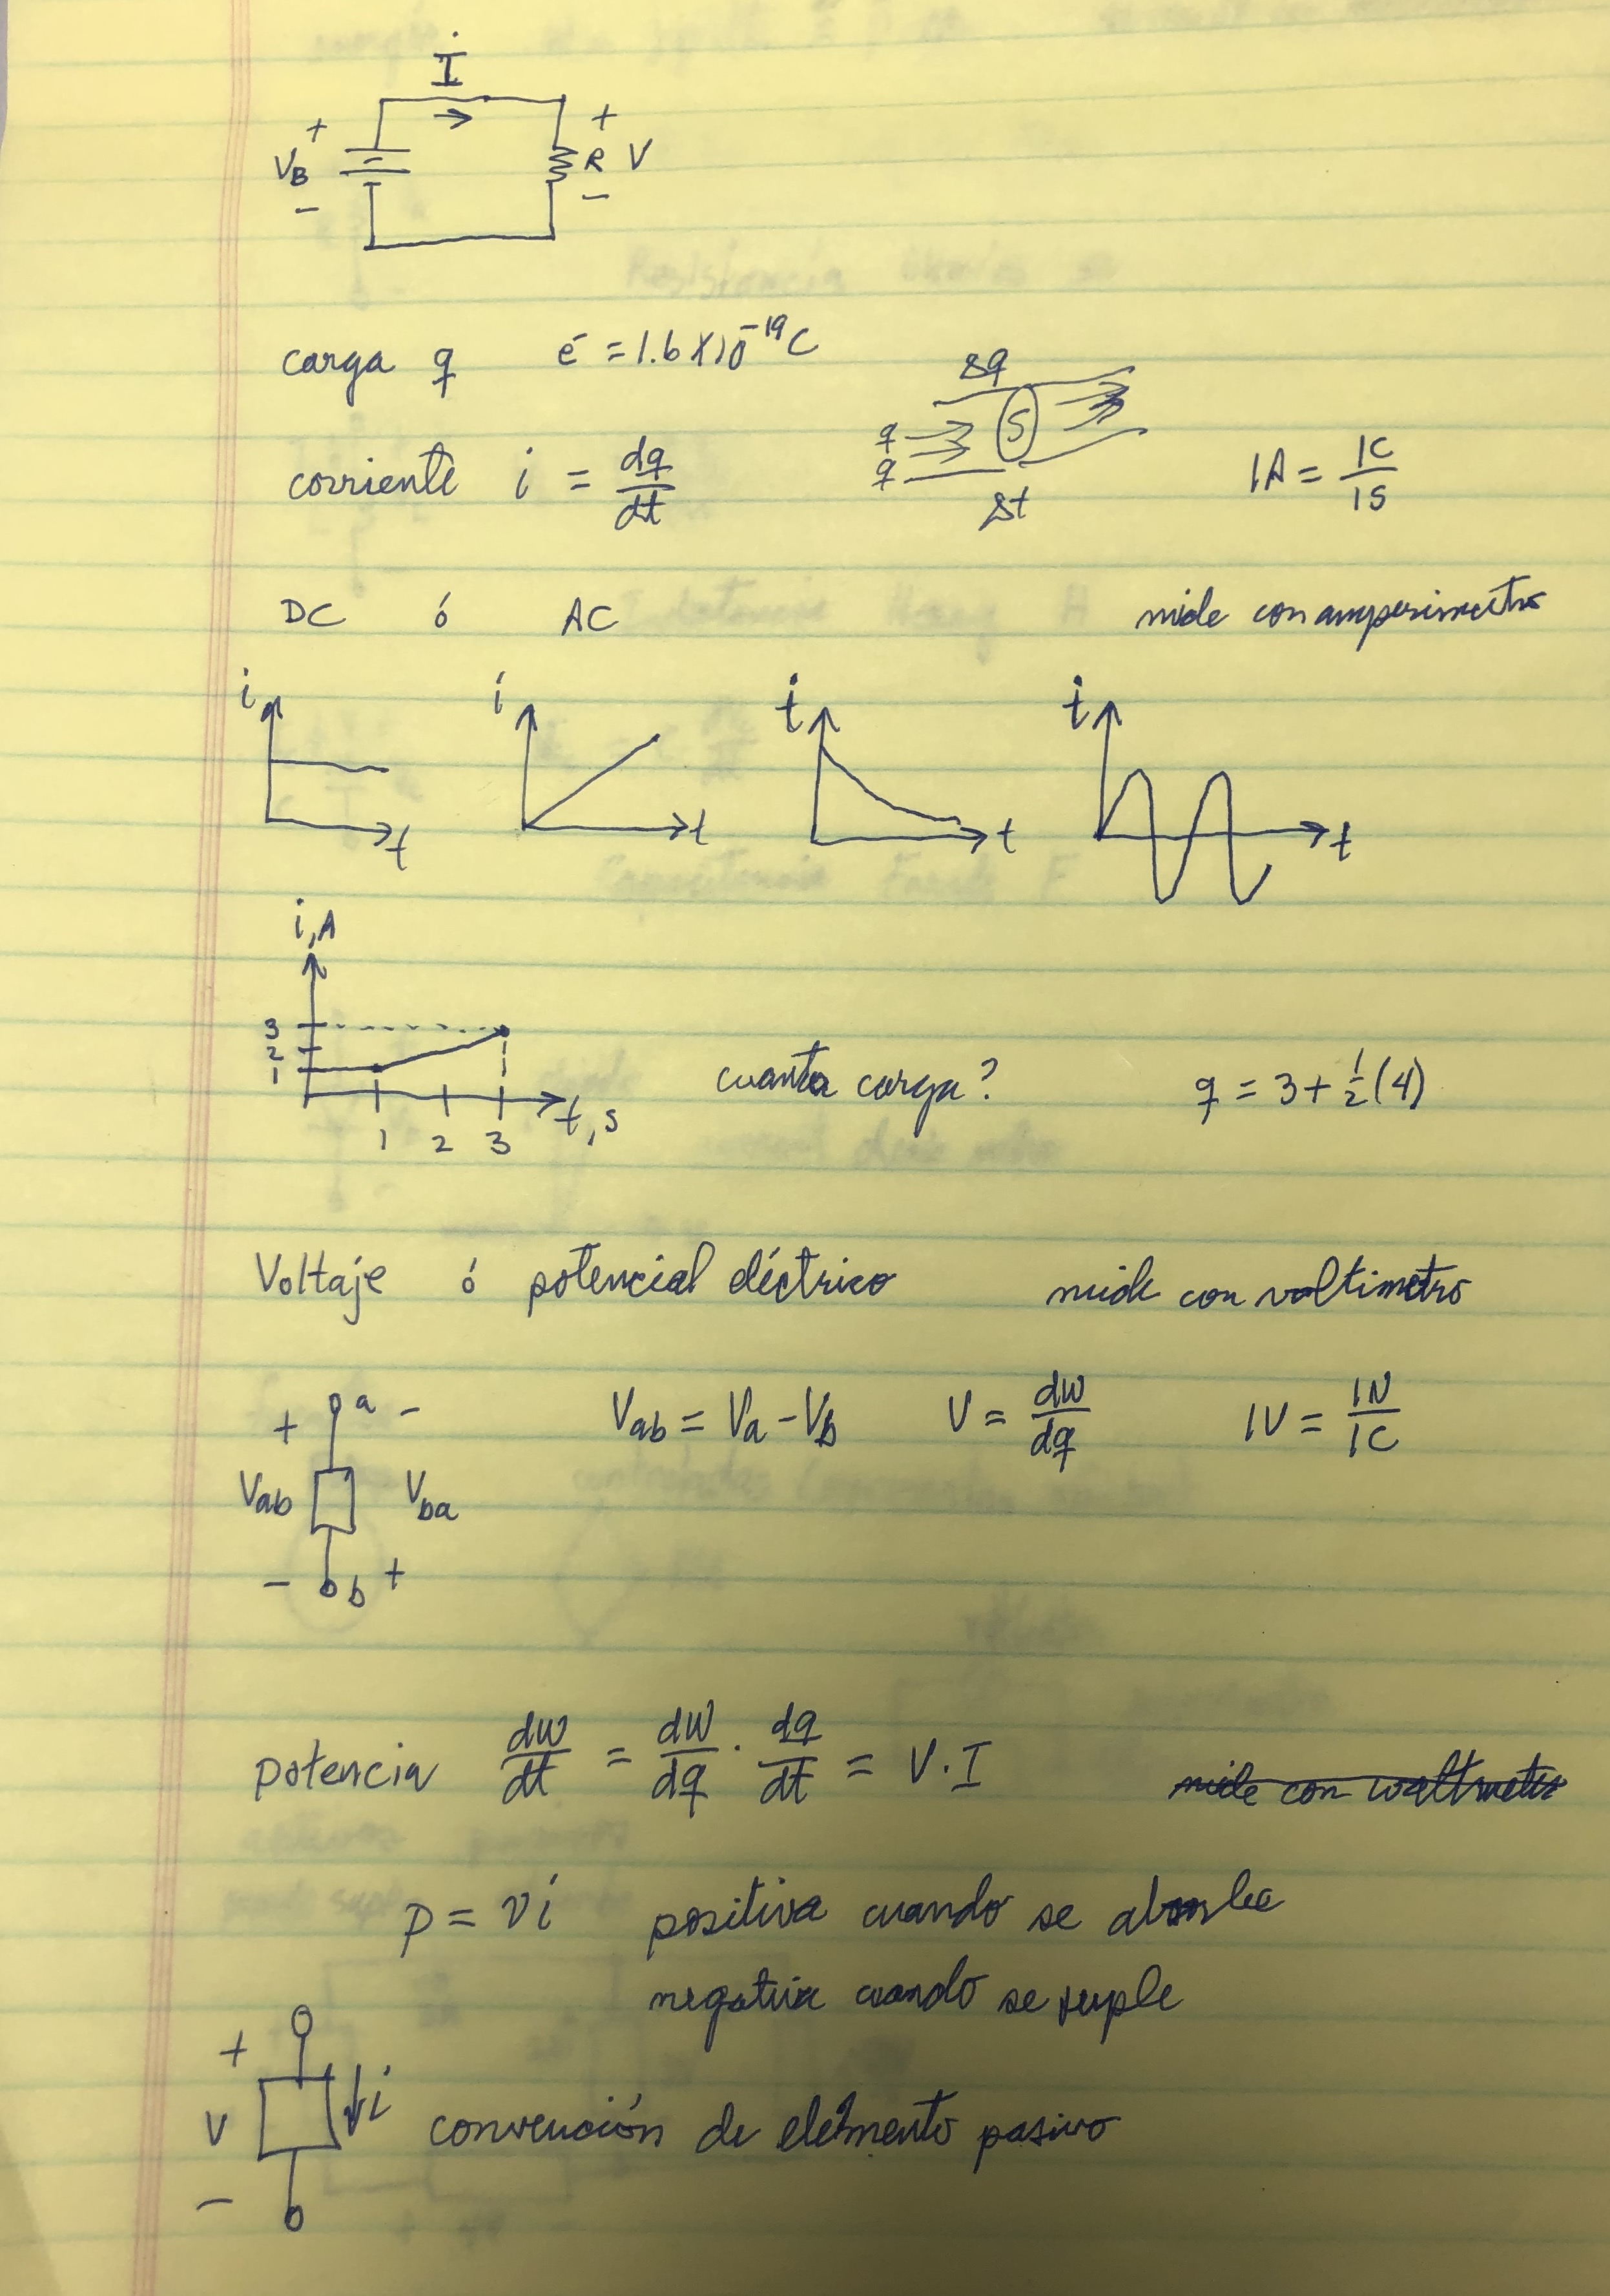 I
+ +
V_B R V
- -
carga q e⁻ = 1.6 x 10⁻¹⁹ C
Δq
q S
q
Δt
corriente i = dq/dt 1A = 1C/1S
DC ó AC mide con amperimetro
i i i i
t t t t
i, A
3
2
1
1 2 3 t, s
cuanta carga? q = 3 + 1/2 (4)
Voltaje ó potencial eléctrico mide con voltimetro
+ a -
V_ab V_ba
- b +
V_ab = V_a - V_b V = dw/dq 1V = 1N/1C
potencia dw/dt = dw/dq · dq/dt = V·I mide con waltmetro
p = vi positiva cuando se absorbe
negativa cuando se suple
+
V i convención de elemento pasivo
-